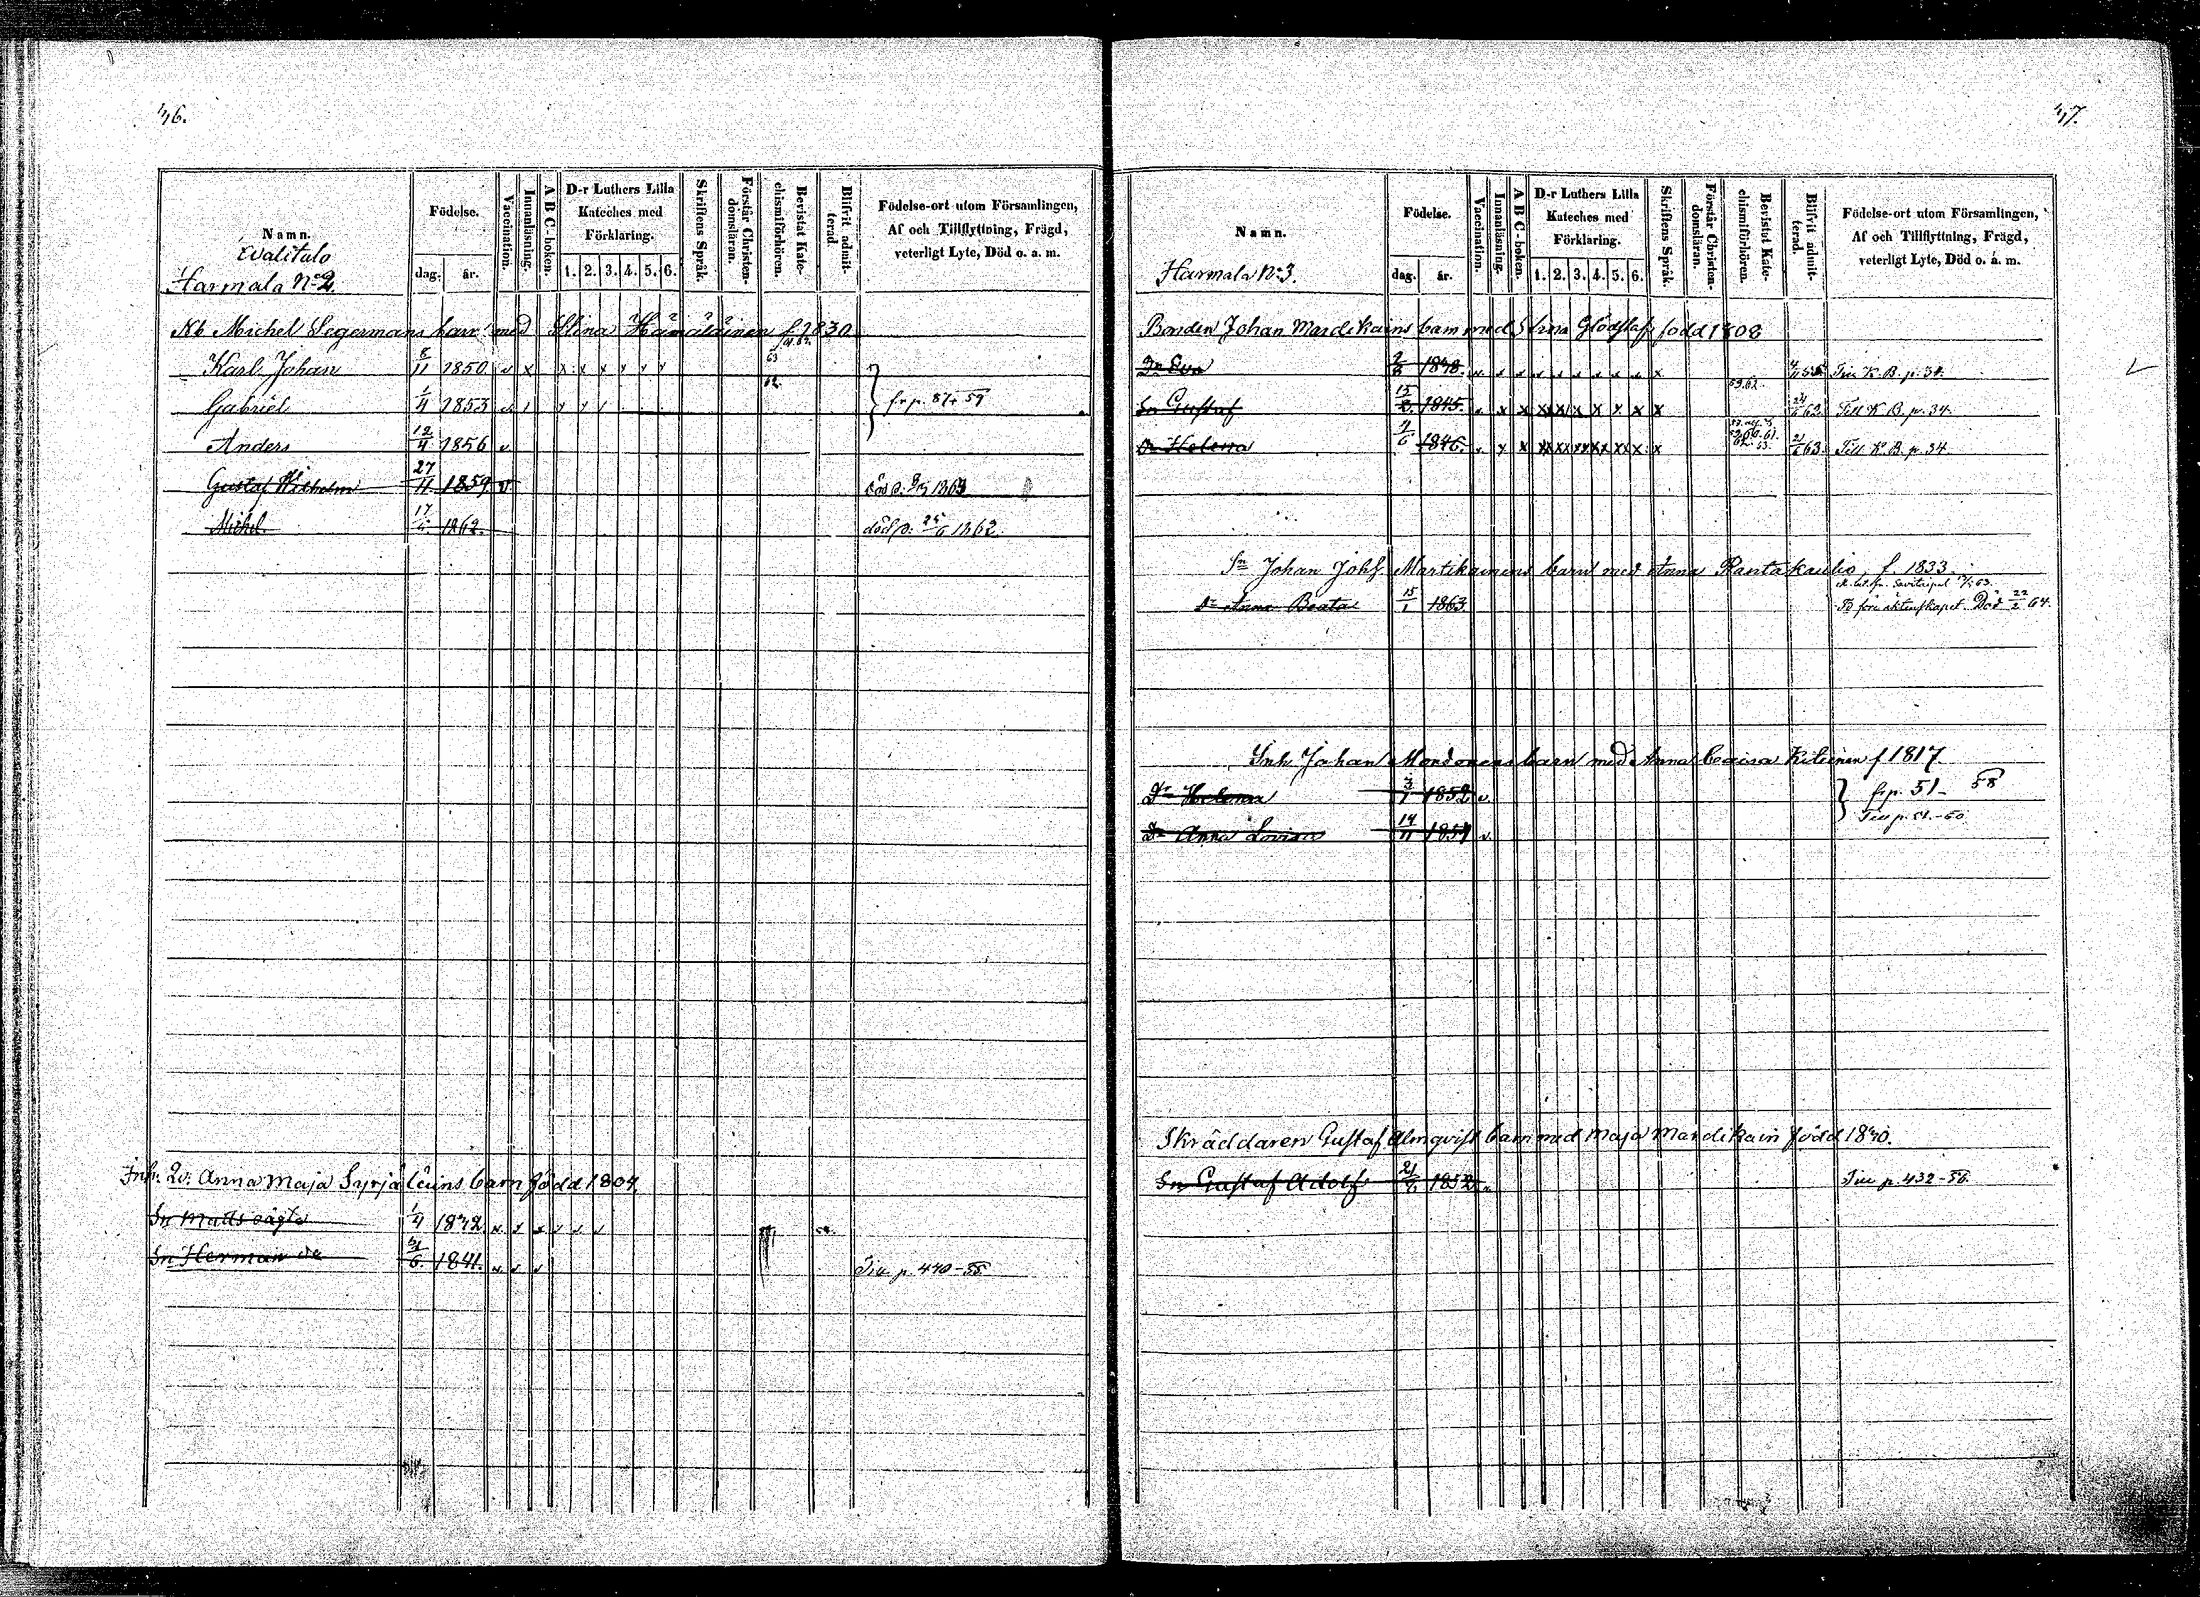 46.
Namn.
Födelse.
dag. år.
Vaccination.
Innanläsning.
A B C-boken.
D-r Luthers Lilla
Kateches med
Förklaring.
1. 2. 3. 4. 5. 6.
Skriftens Språk.
Förstår Christendomsläran.
Bevistat Katechismiförhören.
Blifvit admitterad.
Födelse-ort utom Församlingen,
Af och Tillflyttning, Frägd,
veterligt Lyte, Död o. a. m.
Evalitalo
Harmala No 2
Michel Segermans barn med Stina Hämäläinen f. 1830
Karl Johan 8/11 1850. v x x x x 63
Gabriel 1/4 1853 62. fr p. 87 59
Anders 12/4 1856 v
Gustaf Wilhelm 27/11 1859 v död d. 1863
Michel 17/5 1862. död d. 25/6 1862.
Inh. Anna Maja barn född 1804.
Sn Matts oägte 1/4 1842.
Sn Herman 6. 1841. Till p. 440-55.
47.
Namn.
Födelse.
dag. år.
Vaccination.
Innanläsning.
A B C-boken.
D-r Luthers Lilla
Kateches med
Förklaring.
1. 2. 3. 4. 5. 6.
Skriftens Språk.
Förstår Christendomsläran.
Bevistat Katechismiförhören.
Blifvit admitterad.
Födelse-ort utom Församlingen,
Af och Tillflyttning, Frägd,
veterligt Lyte, Död o. a. m.
Harmala No 3.
Bonden Johan Mardikains barn med Stina Glödstaf född 1808
Dr Eva Till K. B. p. 34.
Sn Gustaf 15 1845. x x x x 59.62. 24/6 62. Till K. B. p. 34.
Dr Helena 7/6 1846. x x x x 21/6 63. Till K. B. p. 34
Sn Johan Johs Martikainens barn med Anna Rantakaulio, f. 1833.
Savitaipal
Dr Anna Beata 15/1 1863 före äktenskapet. Död 22/2 64.
Inh Johan Mondonens barn med Anna Caisa f 1817
Dr Helena 3/1 1852 v. fr p. 51- 58
Till p. 51.-60.
Dr Anna Lovisa 14/11 1854 v
Skräddaren Gustaf Almqvist barn med Maja Mardikain född 1830.
Sn Gustaf Adolf 21/6 1852 Till p. 432-56.